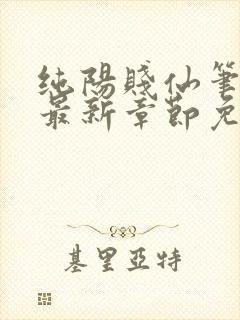 純陽賤仙筆
最新章節免
基里亞特